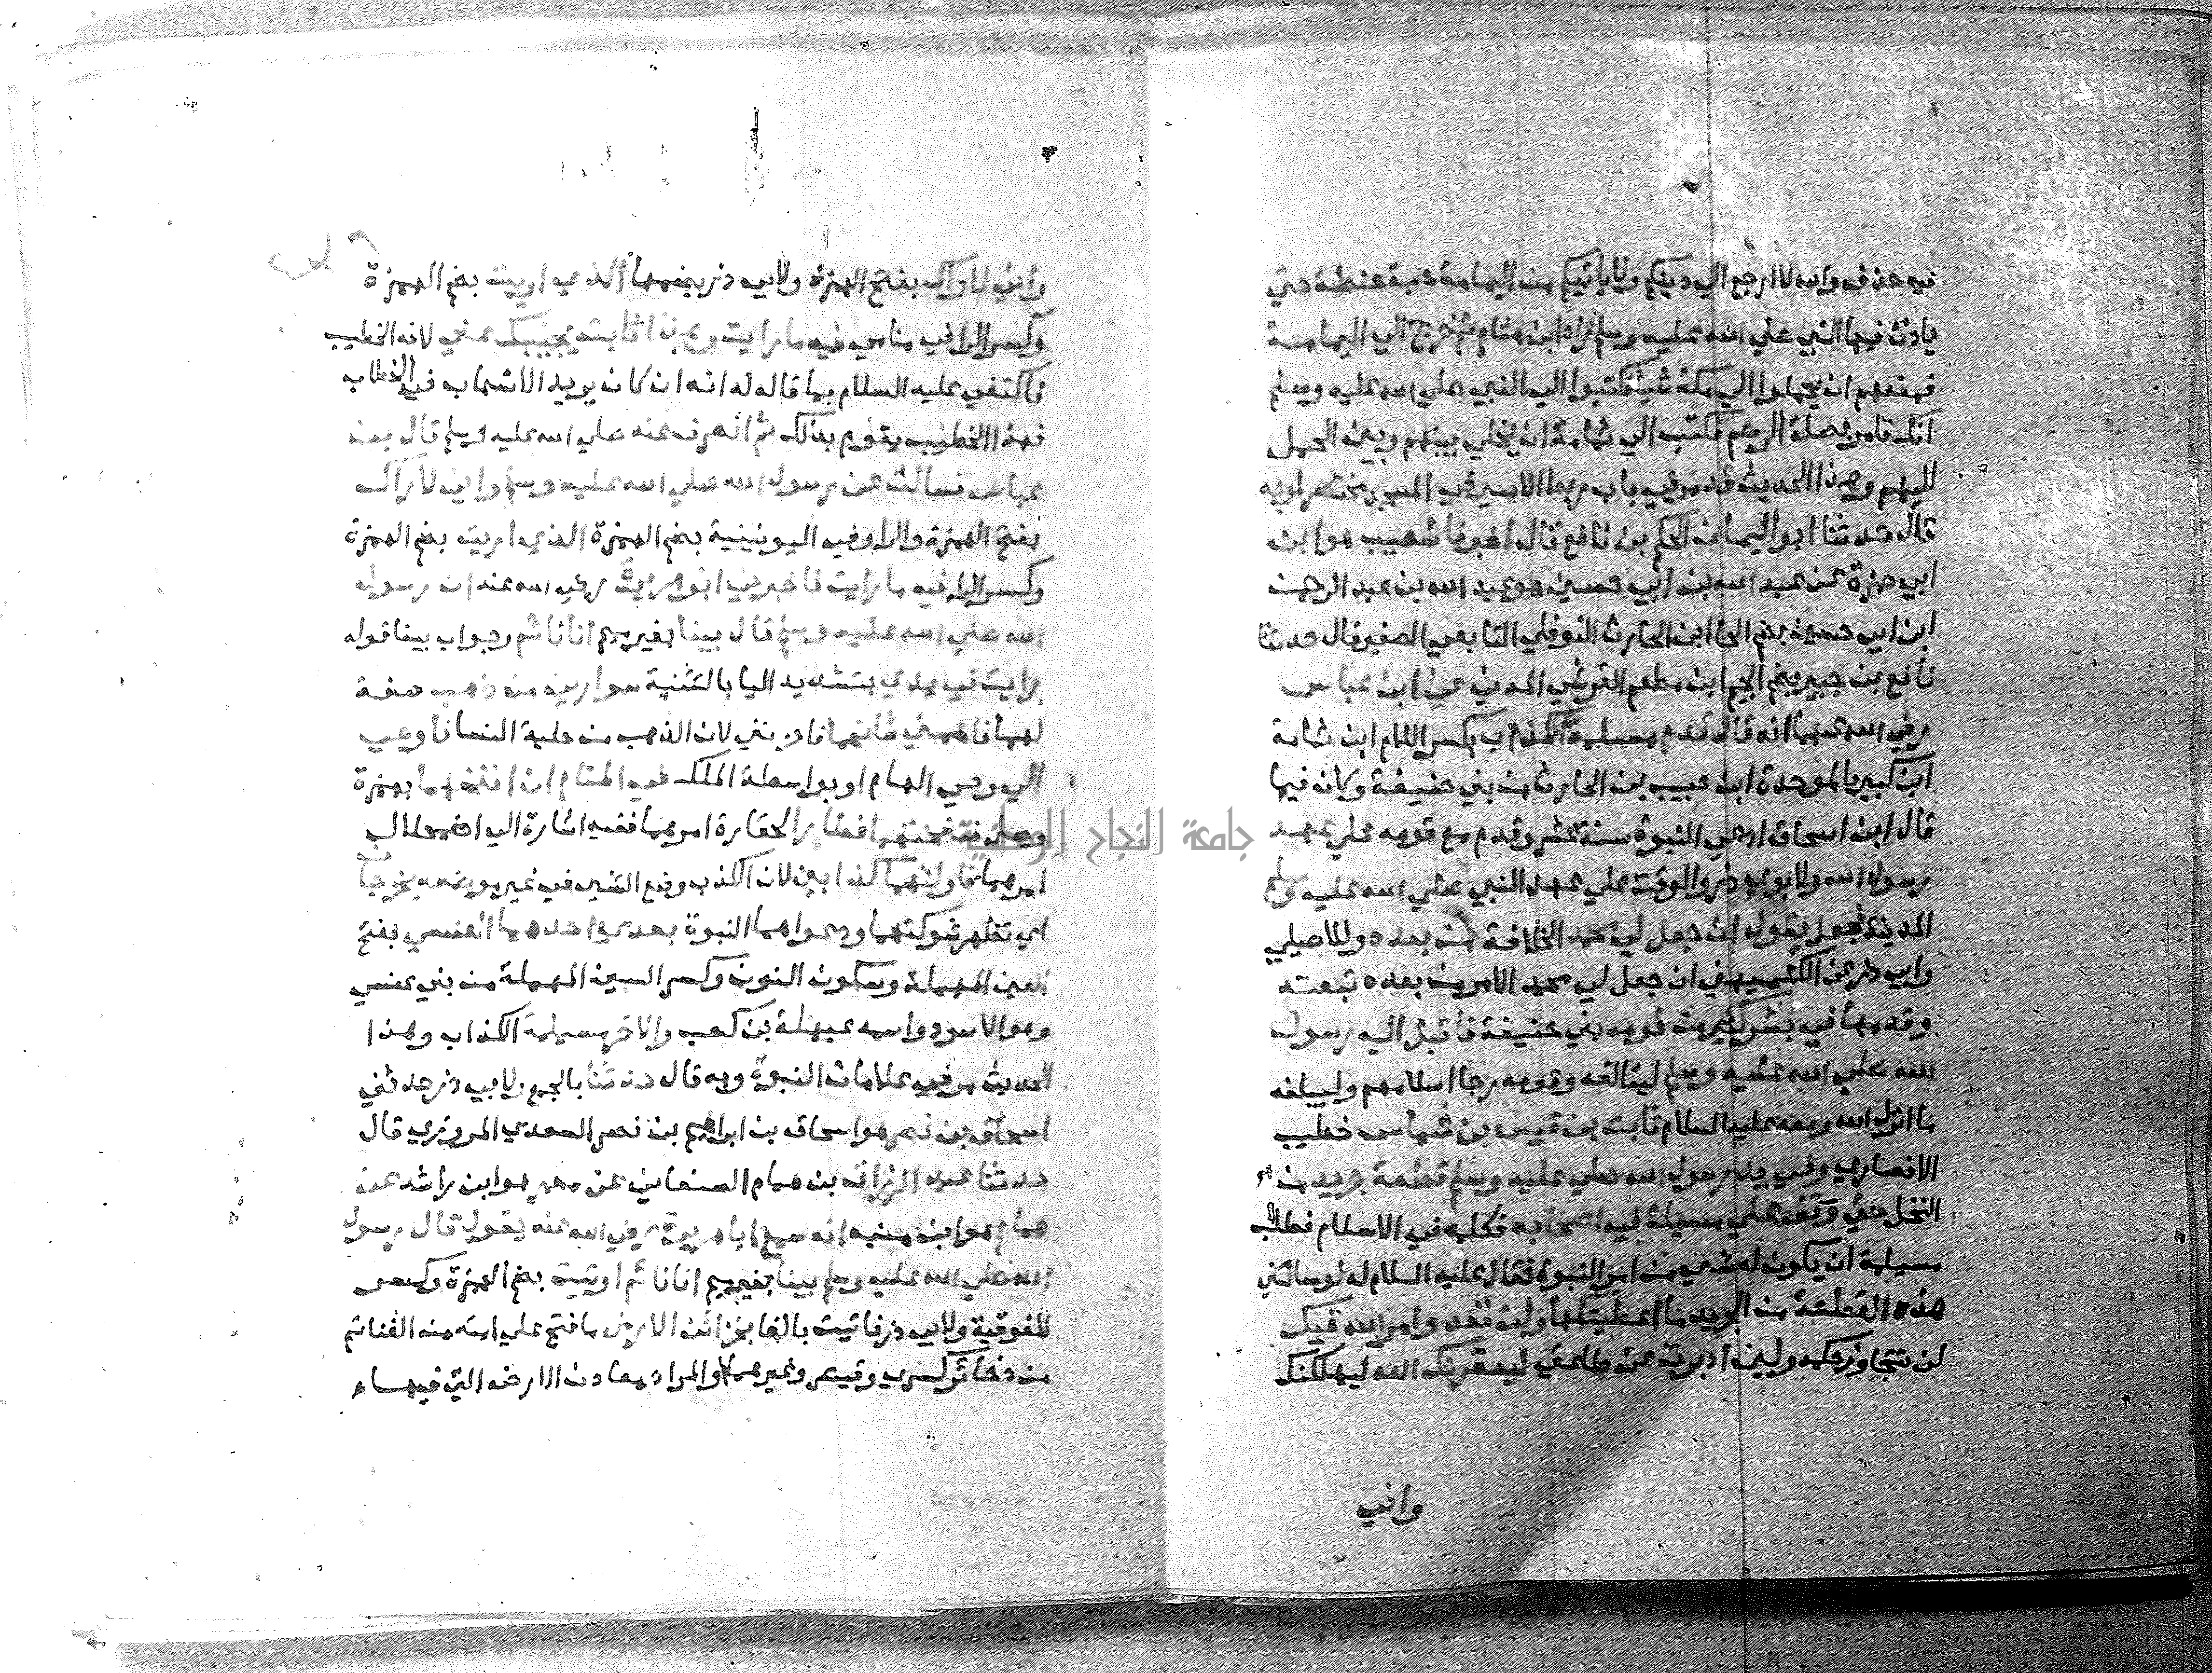 فيه حذف والله لا ارجع الي دينكم ولا ياتيكم من اليمامة حبة حنطة حتي
ياذن فيها النبي صلي الله عليه وسلم زاد ابن هشام ثم خرج الي اليمامة
فمنعهم ان يحملوا الي مكة شيا فكتبوا الي النبي صلي الله عليه وسلم
انك تامر بصلة الرحم فكتب الي ثمامة ان يخلي بينهم وبين الحمل
اليهم وهذا الحديث قد مر في باب ربط الاسير في المسجد مختصرا وبه
قال حدثنا ابو اليمان الحكم بن نافع قال اخبرنا شعيب هو ابن
ابي حمزة عن عبد الله بن ابي حسين هو عبد الله بن عبد الرحمن
ابن ابي حسين بضم الحا ابن الحارث النوفلي التابعي الصغير قال حدثنا
نافع بن جبير بضم الجيم ابن مطعم القرشي المدني عن ابن عباس
رضي الله عنهما انه قال قدم مسيلمة الكذاب بكسر اللام ابن ثمامة
ابن كبير بالموحدة ابن حبيب بن الحارث من بني حنيفة وكان فيما
قال ابن اسحاق ادعي النبوة سنة عشر وقدم مع قومه علي عهد
رسول الله ولابوي ذر والوقت علي عهد النبي صلي الله عليه وسلم
المدينة فجعل يقول ان جعل لي محمد الخلافة من بعده وللاصيلي
وابي ذر عن الكشميهني ان جعل لي محمد الامر من بعده تبعته
وقدمها في بشر كثير من قومه بني حنيفة فاقبل اليه رسول
الله صلي الله عليه وسلم ليتالفه وقومه رجا اسلامهم وليبلغه
ما انزل الله ومعه عليه السلام ثابت بن قيس بن شماس خطيب
الانصاري وفي يد رسول الله صلي عليه وسلم قطعة جريد من
النخل حتي وقف علي مسيلمة في اصحابه فكلمه في الاسلام فطلب
مسيلمة ان يكون له شي من امر النبوة فقال عليه السلام له لو سالتني
هذه القطعة من الجريد ما اعطيتكها ولن تعدو امر الله فيك
لن تتجاوز حكمه ولين ادبرت عن طاعتي ليعقرنك الله ليهلكنك
واني
واني لاراك بفتح الهمزة ولابي ذر بضمها الذي اريت بضم الهمزة
وكسر الرا في منامي فيه ما رايت وهذا ثابت يجيبك عني لانه الخطيب
فاكتفي عليه السلام بما قاله له انه ان كان يريد الاسهاب في الخطاب
فهذا الخطيب يقوم بذلك ثم انصرف عنه صلي الله عليه وسلم قال بعد
عباس فسالت عن رسول الله صلي الله عليه وسلم واني لاراك
بفتح الهمزة والراو في اليونينية بضم الهمزة الذي اريت بضم الهمزة
وكسر الرا فيه ما رايت فاخبرني ابو هريرة رضي الله عنه ان رسول
الله صلي الله عليه وسلم قال بينا بغير ميم انا نائم وجواب بينا قوله
رايت في يدي بتشديد اليا بالتثنية سوارين من ذهب صفة
لهما فاهمني شانهما فاحزنني لان الذهب من حلية النسا فاوحي
الي وحي الهام او بواسطة الملك في المنام ان انفخهما بهمزة
وصل فنفختهما فطارا لحقارة امرهما ففيه اشارة الي اضمحلال
امرهما فاولتهما كذابين لان الكذب وضع الشي في غير موضعه يخرجان
اي تظهر شوكتهما ودعواهما النبوة بعدي احدهما العنسي بفتح
العين المهملة وسكون النون وكسر السين المهملة من بني عنس
وهو الاسود واسمه عبهلة بن كعب والاخر مسيلمة الكذاب وهذا
الحديث مر في علامات النبوة وبه قال حدثنا بالجمع ولابي ذر حدثني
اسحاق بن نصر هو اسحاق بن ابراهيم بن نصر السعدي المروزي قال
حدثنا عبد الرزاق بن همام الصنعاني عن معمر هو ابن راشد عن
همام هو ابن منبه انه سمع ابا هريرة رضي الله عنه يقول قال رسول
الله صلي الله عليه وسلم بينا بغير ميم انا نائم اوتيت بضم الهمزة وكسر
الفوقية ولابي ذر فاتيت بالفا بخزائن الارض ما فتح علي امته من الغنائم
من ذخائر كسري وقيصر وغيرهما او المراد معادن الارض التي فيها
جامعة النجاح الوطنية